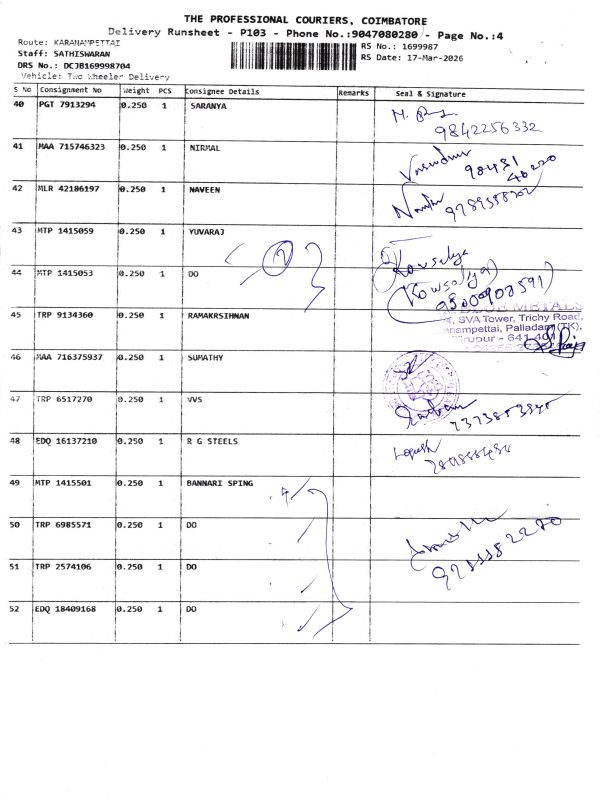 THE PROFESSIONAL COURIERS, COIMBATORE
Delivery Runsheet - P103 - Phone No.:9047080280 - Page No.:4
Route: KARANAMPETTAI
Staff: SATHISWARAN
DRS No.: DCJB169998704
Vehicle: Two Wheeler Delivery
RS No.: 1699987
RS Date: 17-Mar-2026
S No Consignment No Weight PCS Consignee Details Remarks Seal & Signature
40 PGT 7913294 0.250 1 SARANYA
9842256332
41 MAA 715746323 0.250 1 NIRMAL
42 MLR 42186197 0.250 1 NAVEEN
43 MTP 1415059 0.250 1 YUVARAJ
Kowsalya
44 MTP 1415053 0.250 1 DO
(Kowsalya)
45 TRP 9134360 0.250 1 RAMAKRSIHNAN
SVA Tower, Trichy Road,
Palladam (TK),
46 MAA 716375937 0.250 1 SUMATHY
47 TRP 6517270 0.250 1 VVS
48 EDQ 16137210 0.250 1 R G STEELS
49 MTP 1415501 0.250 1 BANNARI SPING
50 TRP 6985571 0.250 1 DO
51 TRP 2574106 0.250 1 DO
52 EDQ 18409168 0.250 1 DO